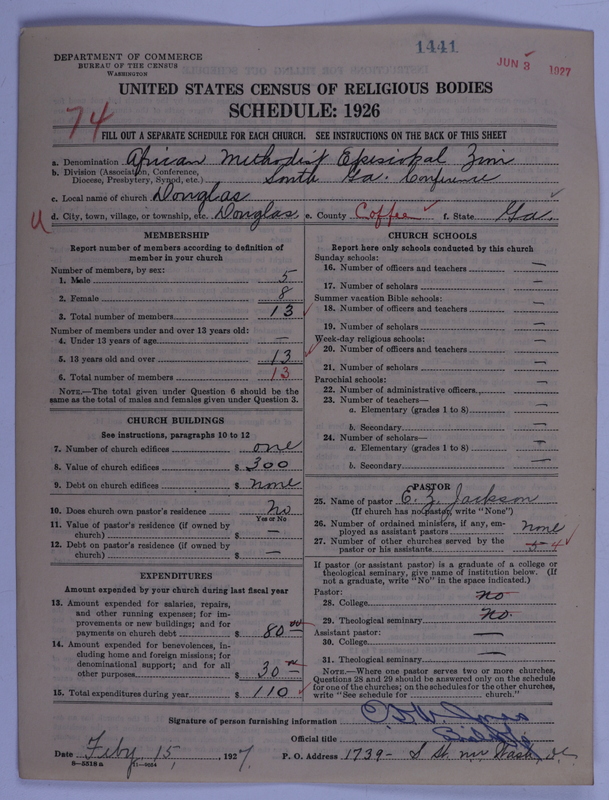 1441
JUN 3 1927
DEPARTMENT OF COMMERCE
BUREAU OF THE CENSUS
WASHINGTON
UNITED STATES CENSUS OF RELIGIOUS BODIES
SCHEDULE: 1926
74
FILL OUT A SEPARATE SCHEDULE FOR EACH CHURCH. SEE INSTRUCTIONS ON THE BACK OF THIS SHEET
a. Denomination African Methodist Episcopal Zion
b. Division (Association, Conference, Diocese, Presbytery, Synod, etc.) South Ga. Conference
c. Local name of church Douglas
d. City, town, village, or township, etc. Douglas e. County Coffee f. State Ga.
MEMBERSHIP
Report number of members according to definition of
member in your church
Number of members, by sex:
1. Male 5
2. Female 8
3. Total number of members 13
Number of members under and over 13 years old:
4. Under 13 years of age —
5. 13 years old and over 13
6. Total number of members 13
NOTE.—The total given under Question 6 should be
same as the total of males and females given under Question 3.
CHURCH BUILDINGS
See instructions, paragraphs 10 to 12
7. Number of church edifices one
8. Value of church edifices $ 300
9. Debt on church edifices $ none
10. Does church own pastor's residence No
Yes or No
11. Value of pastor's residence (if owned by
church) $ —
12. Debt on pastor's residence (if owned by
church) $ —
EXPENDITURES
Amount expended by your church during last fiscal year
13. Amount expended for salaries, repairs,
and other running expenses; for im-
provements or new buildings; and for
payments on church debt $ 80 00
14. Amount expended for benevolences, in-
cluding home and foreign missions; for
denominational support; and for all
other purposes $ 30
15. Total expenditures during year $ 110
CHURCH SCHOOLS
Report here only schools conducted by this church
Sunday schools:
16. Number of officers and teachers —
17. Number of scholars —
Summer vacation Bible schools:
18. Number of officers and teachers —
19. Number of scholars —
Week-day religious schools:
20. Number of officers and teachers —
21. Number of scholars —
Parochial schools:
22. Number of administrative officers —
23. Number of teachers—
a. Elementary (grades 1 to 8) —
b. Secondary —
24. Number of scholars—
a. Elementary (grades 1 to 8) —
b. Secondary —
PASTOR
25. Name of pastor E. Z. Jackson
(If church has no pastor, write "None")
26. Number of ordained ministers, if any, em-
ployed as assistant pastors none
27. Number of other churches served by the
pastor or his assistants 5 4
If pastor (or assistant pastor) is a graduate of a college or
theological seminary, give name of institution below. (If
not a graduate, write "No" in the space indicated.)
Pastor:
28. College no
29. Theological seminary no.
Assistant pastor:
30. College —
31. Theological seminary —
NOTE.—Where one pastor serves two or more churches,
Questions 28 and 29 should be answered only on the schedule
for one of the churches; on the schedules for the other churches,
write "See schedule for church."
Signature of person furnishing information
Official title
Date Feby 15, 1927. P. O. Address 1739- S St. nw Wash, DC
8—5518a 11—9054